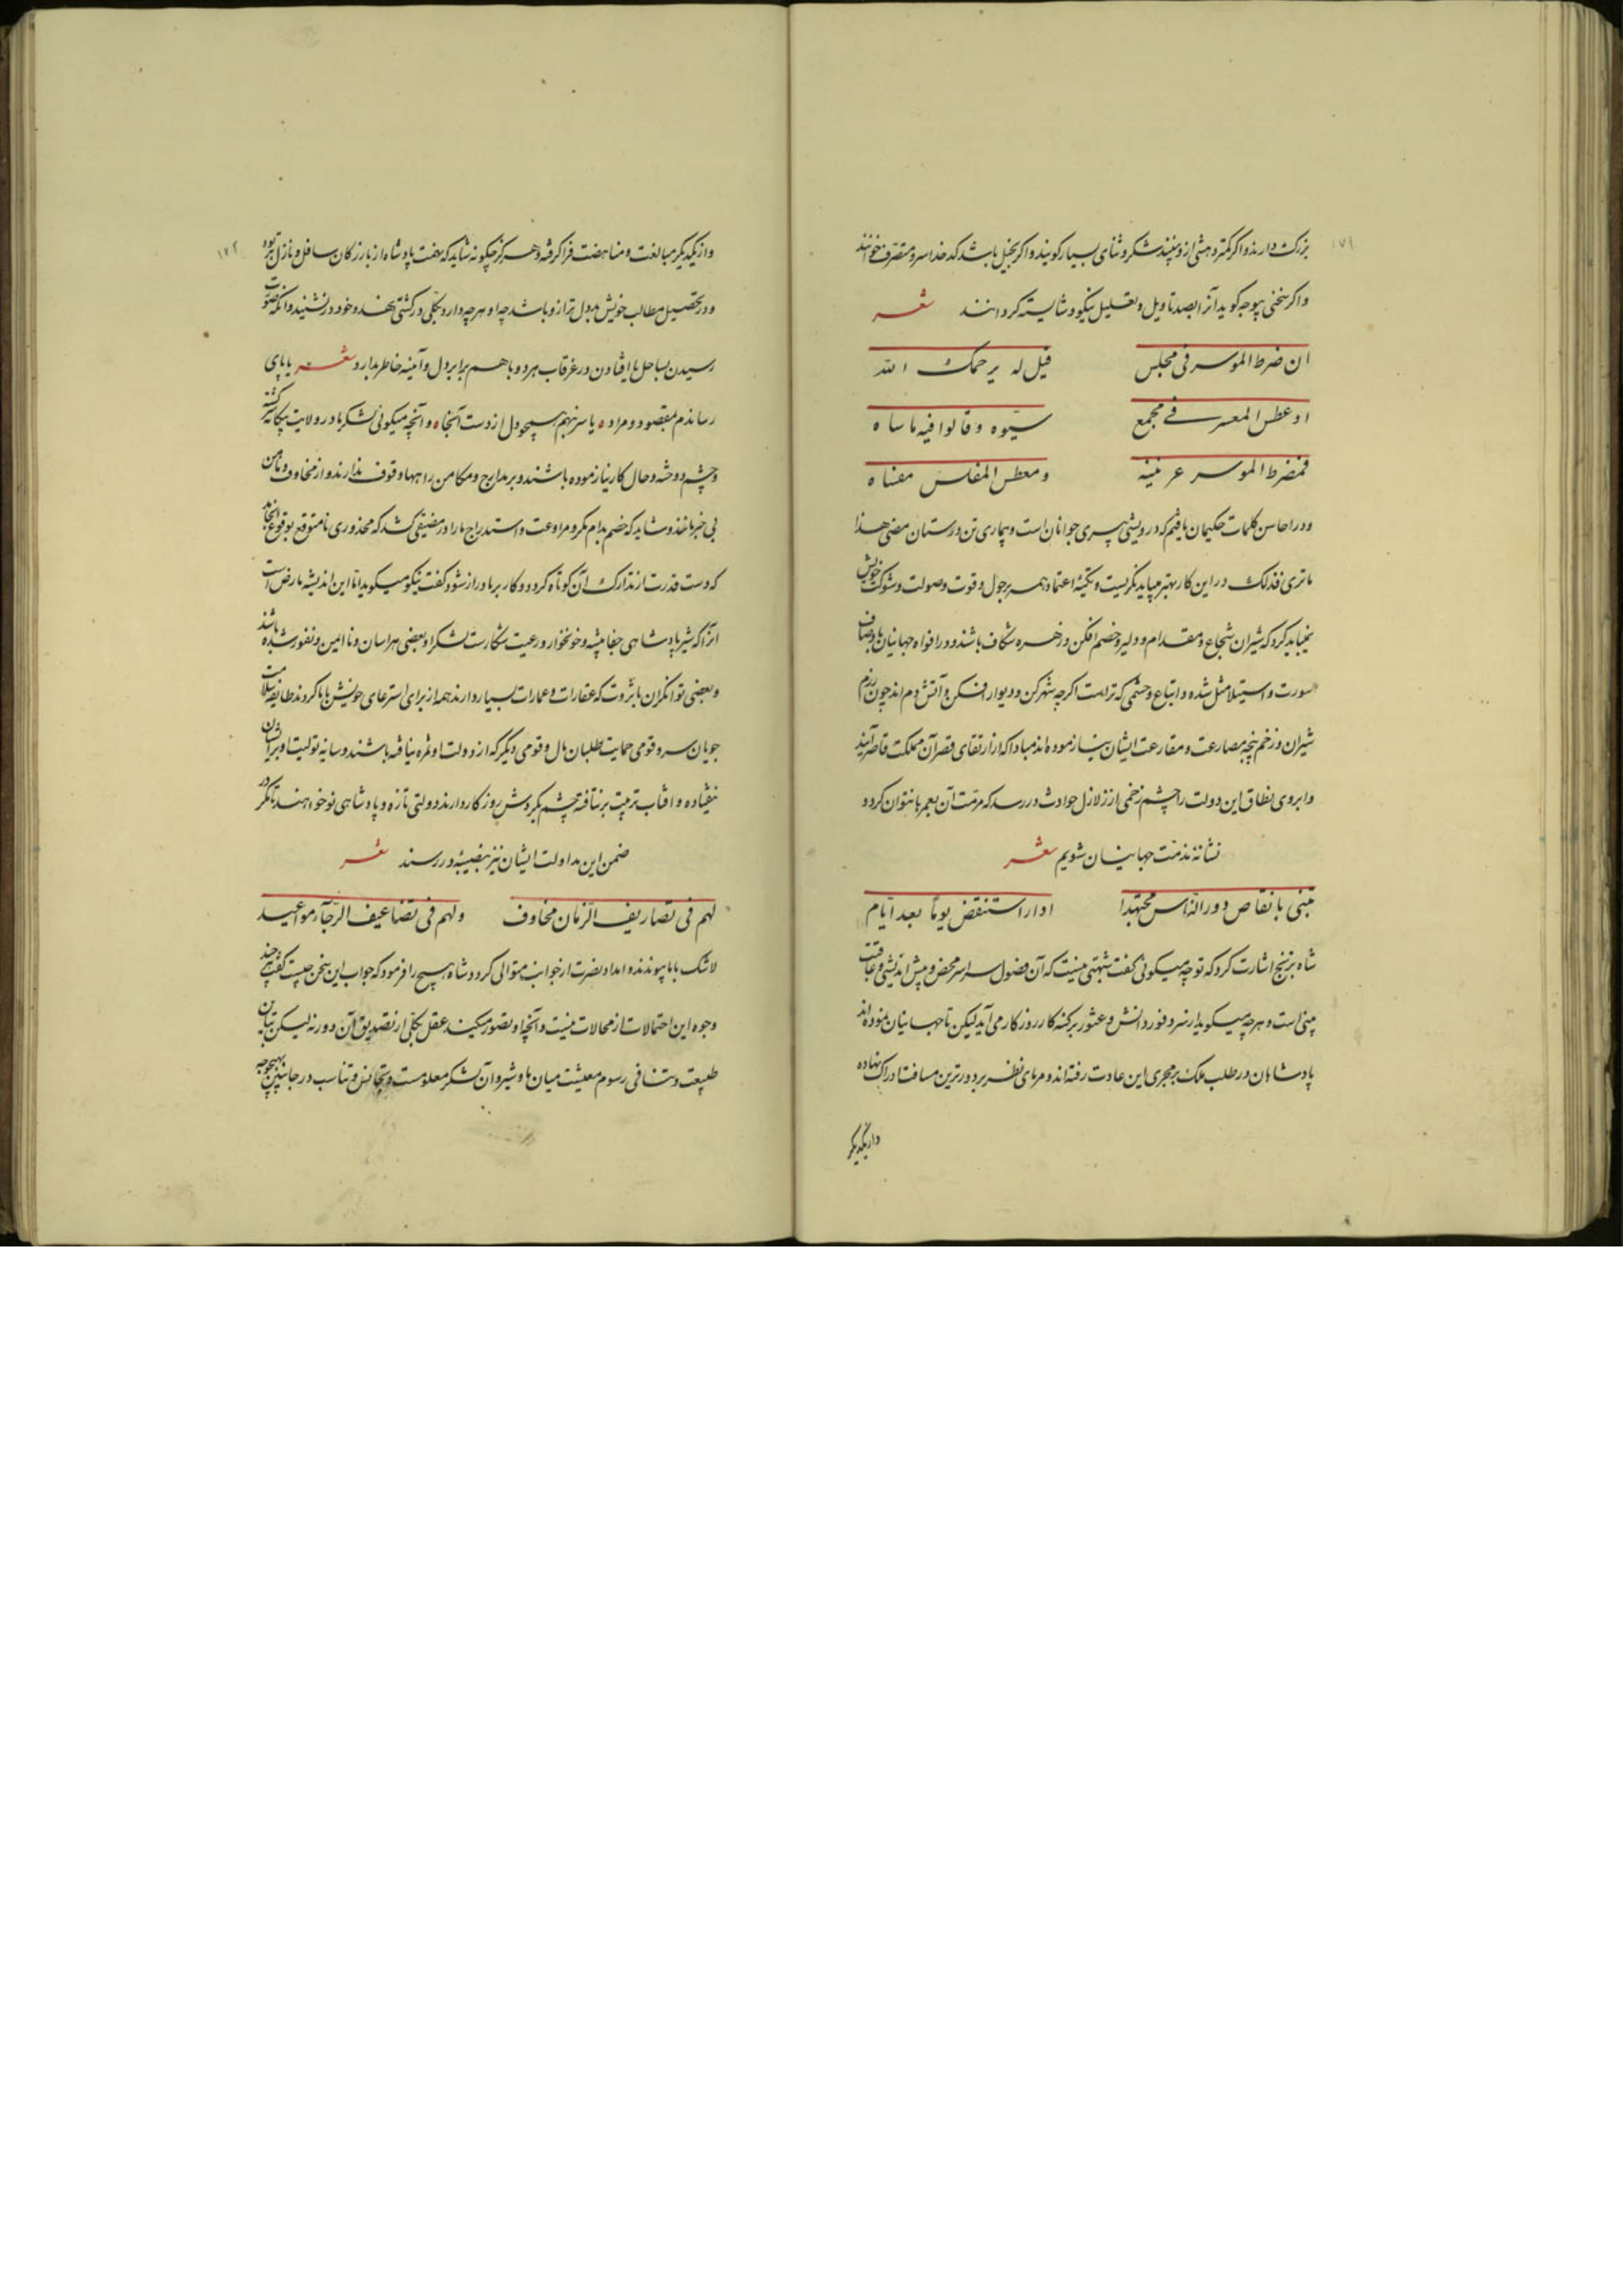 ۱۷۱
بزرگ دارند و اگر کمتر دهشی ازو بینند شکر و ثنای بسیار گویند و اگر بخیل باشد کدخدا سر و متصرف خوانند
و اگر سخنی بیوجه گوید آنرا بصد تاویل و تعلیل نیکو و شایسته گردانند شعر
ان ضرط الموسر فی مجلس قیل له یرحمک الله
او عطس المعسر فی مجمع سبّوه و قالوا فیه ما ساه
فمضرط الموسر عرنینه و معطس المفلس مفساه
و در احاسن کلمات حکیمان یافتم که درویشی پیری جوانان است و بیماری تن درستان مضی هذا
ماتری فذلک در این کار بهتر میباید نگریست و تکیه اعتماد همه بر حول و قوت و صولت و شوکت خویش
نمیباید کرد که شیران شجاع و مقدام و دلیر و خصم افکن و زهره شکاف باشند و در افواه جهانیان باوصاف
سورت و استیلا مثل شده و اتباع و حشمی که تراست اگرچه شهر کن و دیوار افکن و آتش دم اند چون رزم
شیران و زخم پنجه مصارعت و مقارعت ایشان نیازموده اند مبادا که از ارتقای قصر آن مملکت قاصر آیند
و ابروی نطاق این دولت را چشم زخمی از زلازل حوادث در رسد که مرمّت آن بعمرها نتوان کرد و
نشانه مذمّت جهانیان شویم شعر
متنی بانقاص دور الناس مجتهدا دارا ستنقض یوماً بعد ایّام
شاه بزنج اشارت کرد که تو چه میگوئی گفت شبهتی نیست که آن فصول سراسر محض و پیش اندیشی و عاقبت
بینی است و هرچه میگوید از سر وفور دانش و عثور بر کنه کار روزگار می آید لیکن تا جهانیان بوده اند
پادشاهان در طلب ملک بر مجری این عادت رفته اند و مرمای نظر بر دورترین مسافت ادراک نهاده
و از یکدیگر
۱۷۲
و از یکدیگر مبالغت و مناهضت فرا گرفته و هرگز چگونه شاید که همّت پادشاه از بازرگان سافل و نازل تر بود
و در تحصیل مطالب خویش بد دل تر ازو باشد چه او هرچه دارد بکلّی در کشتی نهد و خود در نشیند و آنگه صورت
رسیدن بساحل یا افتادن در غرقاب هر دو با هم برابر دل و آینه خاطر بدارد شعر یا پای
رساندم بمقصود و مراد یا سر بنهم همچو دل از دست آنجا و آنچه میگوئی لشکر ما در ولایت بیگانه گشته
و چشم دوخته و حال کار نیازموده باشند و بر مدارج و مکامن راهها وقوف ندارند و از مخاوف و مآمن
بی خبر مانند و شاید که خصم بدام مکر و مراوغت و استدراج ما را در مضیقی کشد که محذوری نامتوقع بوقوع انجامد
که دست قدرت از تدارک آن کوتاه گردد و کار بر ما دراز شود گفت نیکو میگوید امّا این اندیشه معارض است
انرا که شیر پادشاهی جفا پیشه و خونخوار و رعیت شکارست لشکر او بعضی هراسان و ناامین و نفور شده باشند
و بعضی توانگران باثروت که عقارات و عمارات بسیار دارند همه از برای استرعای خویش با ما گروند طایفه سلامت
جویان سر و قومی حمایت طلبان مال و قومی دیگر که از دولت او ثمره نیافته باشند و سایه تولیت او بر ایشان
نیفتاده و افتاب تربیت بر نتافته چشم بگردش روزگار دارند و دولتی تازه و پادشاهی نو خواهند تا مگر در
ضمن این مداولت ایشان نیز بنصیبه در رسند شعر
لهم فی تصاریف الزمان مخاوف و لهم فی تضاعیف الرجآء مواعید
لاشک با ما پیوندند و امداد نصرت از جوانب متوالی گردد شاه هیچ را فرمود که جواب این سخن چیست گفت هر چند
وجوه این احتمالات از محالات نیست و آنچه او تصور میکند عقل بکلّی از تصدیق آن دور نه لیکن تباین
طبیعت و تنافی رسوم معیشت میان ما و شیر و آن لشکر معلومست و تجانس و تناسب در جانبین بهیچ وجه